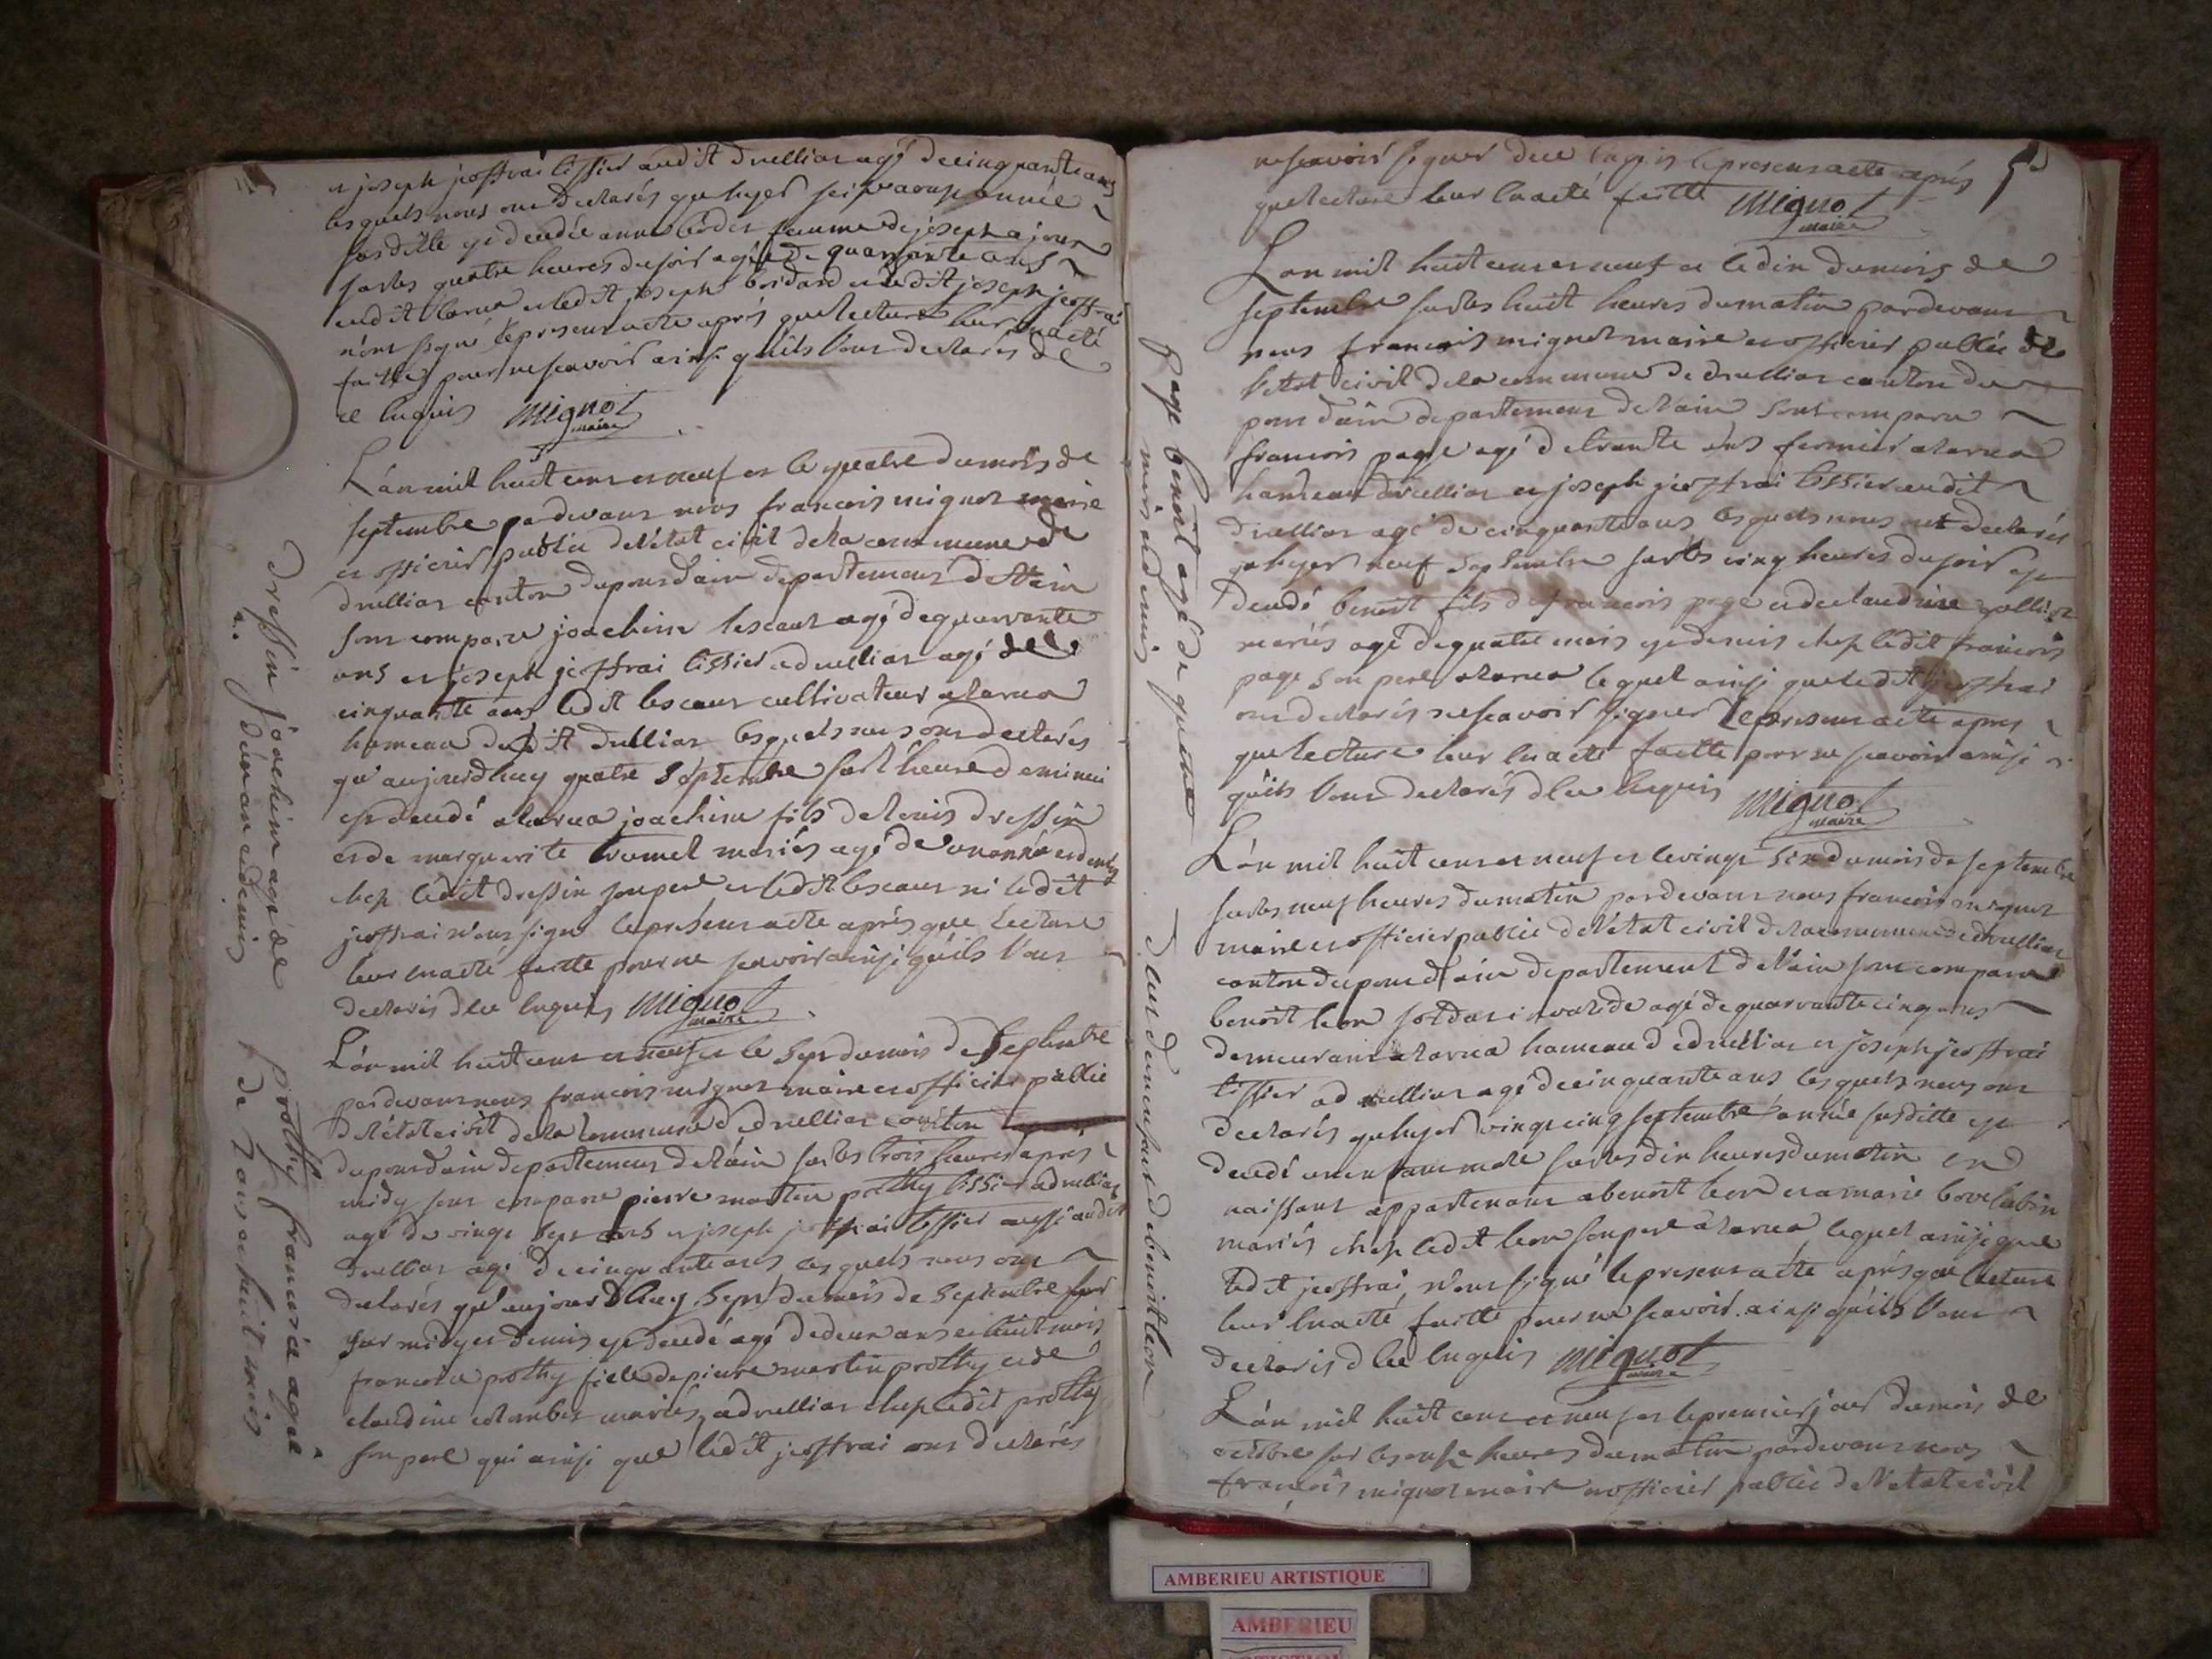 et joseph jeoffrai tissier audit druillias agé de cinquante ans
lesquels nous ont declarés que hyer
susditte est decedée femme de joseph
sur les quatre heures du soir agée de quarante ans
audit et ledit joseph et ledit joseph jeoffrai
n'ont signé le present acte après que lecture leur en a eté
faitte pour ne scavoir ainsi quils l'ont declarés de
ce enquis Mignot
maire
L'an mil huit cent et neuf et le quatre du mois de
septembre pardevant nous francois mignot maire
et officier public de l'état civil de la commune de
druillias canton du pont d'ain departement de l'ain
sont comparu joachim lescaut agé de quarante
ans et joseph jeoffrai tissier a druillias agé de
cinquante ans ledit lescaut cultivateur a larua
hameau dudit druillias lesquels nous ont declarés
qu'aujourd'huy quatre septembre sur l'heure de minui
est decedé a larua joachim fils de denis dressin
et de marguerite mariés agé de un an et demis
chez ledit dressin son pere et ledit lescaut ni ledit
jeoffrai n'ont signé le present acte après que lecture
leur en a eté faitte pour ne scavoir ainsi quils l'ont
declarés de ce enquis Mignot
maire
L'an mil huit cent et neuf et le sept du mois de septembre
pardevant nous francois mignot maire et officier public
de l'état civil de la commune de druillias canton
du pont d'ain departement de l'ain sur les trois heures apres
midy sont comparu pierre martin prothy tissier a druillias
agé de vingt sept ans et joseph jeoffrai tissier aussi audit
druillias agé de cinquante ans lesquels nous ont
declarés qu'aujourd'huy sept du mois de septembre
sur midy et demis est decedé agé de deux ans et huit mois
francoise prothy fille de pierre martin prothy et de
claudine colomber mariés a druillias chez ledit prothy
son pere qui ainsi que ledit jeoffrai ont declarés
dressin joachim agé de
d'un an et demis
prothy francoise agée
de 2 ans et huit mois
ne scavoir signer de ce enquis le present acte après
que lecture leur en a eté faitte Mignot
maire
L'an mil huit cent et neuf et le dix du mois de
septembre sur les huit heures du matin pardevant
nous francois mignot maire et officier public de
l'etat civil de la commune de druillias canton du
pont d'ain departement de l'ain sont comparu
francois page agé de trante ans fermier a larua
hameau druillias et joseph jeoffrai tissier audit
druillias agé de cinquante ans lesquels nous ont declarés
que hyer neuf septembre sur les cinq heures du soir est
decedé benoit fils de francois page et de claudine
mariés agé de quatre mois et demis chez ledit francois
page son pere a larua lequel ainsi que ledit jeoffrai
ont declarés ne scavoir signer le present acte apres
que lecture leur en a eté faitte pour ne scavoir ainsi
quils l'ont declarés de ce enquis Mignot
maire
L'an mil huit cent et neuf et le vingt six du mois de septembre
sur les neuf heures du matin pardevant nous francois mignot
maire et officier public de l'état civil de la commune de druillias
canton du pont d'ain departement de l'ain sont comparu
benoit leon soldat invalide agé de quarante cinq ans
demeurant a larua hameau de druillias et joseph jeoffrai
tissier a druillias agé de cinquante ans lesquels nous ont
declarés que hyer vingt cinq septembre année susditte est
decedé un enfant male sur les dix heures du matin en
naissant appartenant a benoit leon et a marie
mariés chez ledit leon son pere a larua lequel ainsi que
ledit jeoffrai n'ont signé le present acte après que lecture
leur en a eté faitte pour ne scavoir ainsi quils l'ont
declarés de ce enquis Mignot
maire
L'an mil huit cent et neuf et le premier jour du mois de
octobre sur les onze heures du matin pardevant nous
francois mignot maire et officier public de l'etat civil
page benoit agé de quatre
mois et demis
deces d'un enfant de benoit leon
AMBERIEU ARTISTIQUE
AMBERIEU